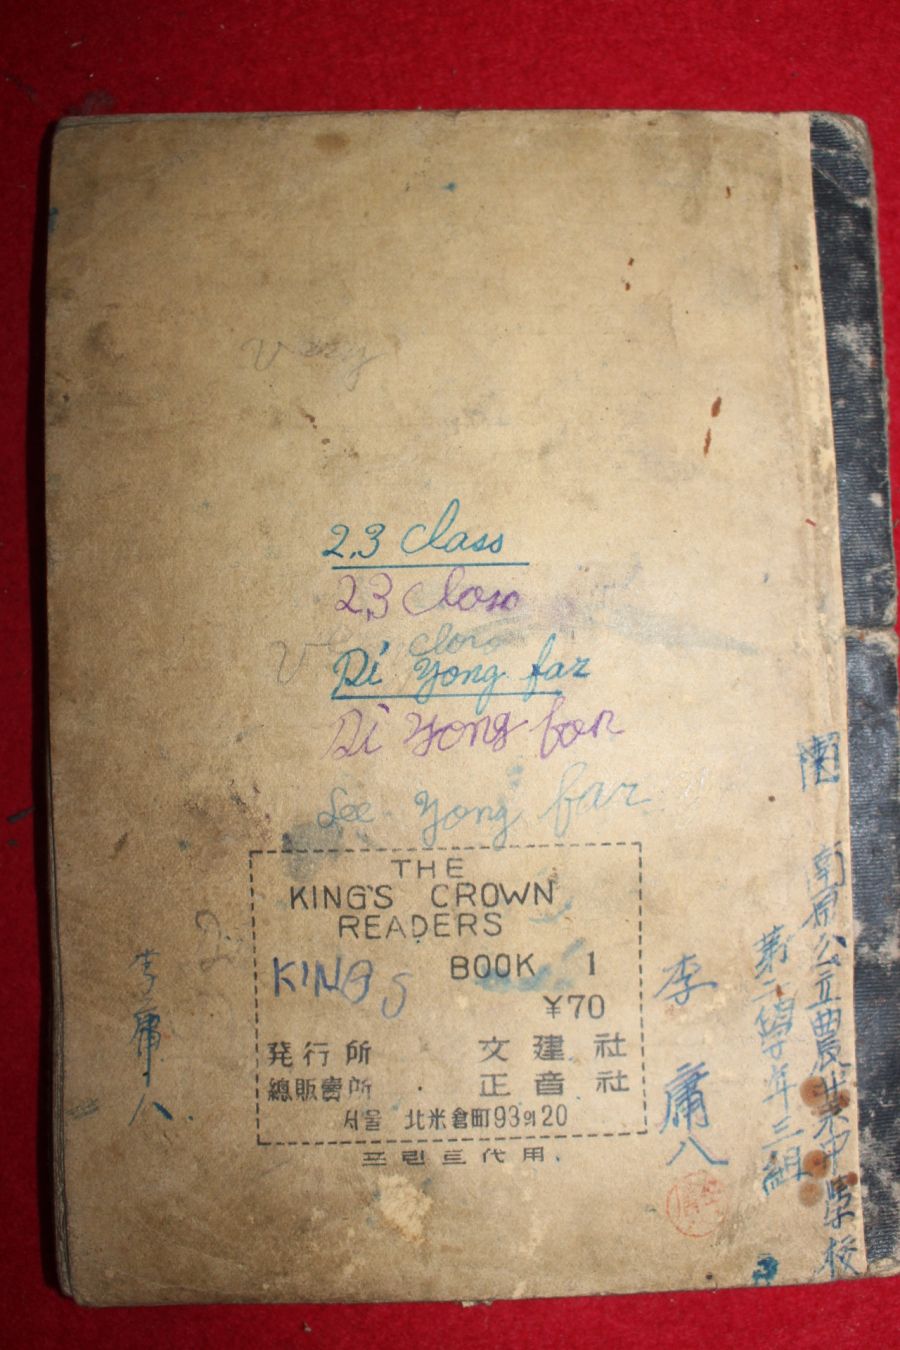 Very
2.3 class
2.3 class
Di Yong far
Di Yong far
See Yong far
THE
KING'S CROWN
READERS
BOOK 1
KINGS
¥70
発行所 文建社
總販賣所 · 正音社
서울 北米倉町93의20
프린트代用.
李庸八
李庸八.
第二學年三組
南原公立農業中學校